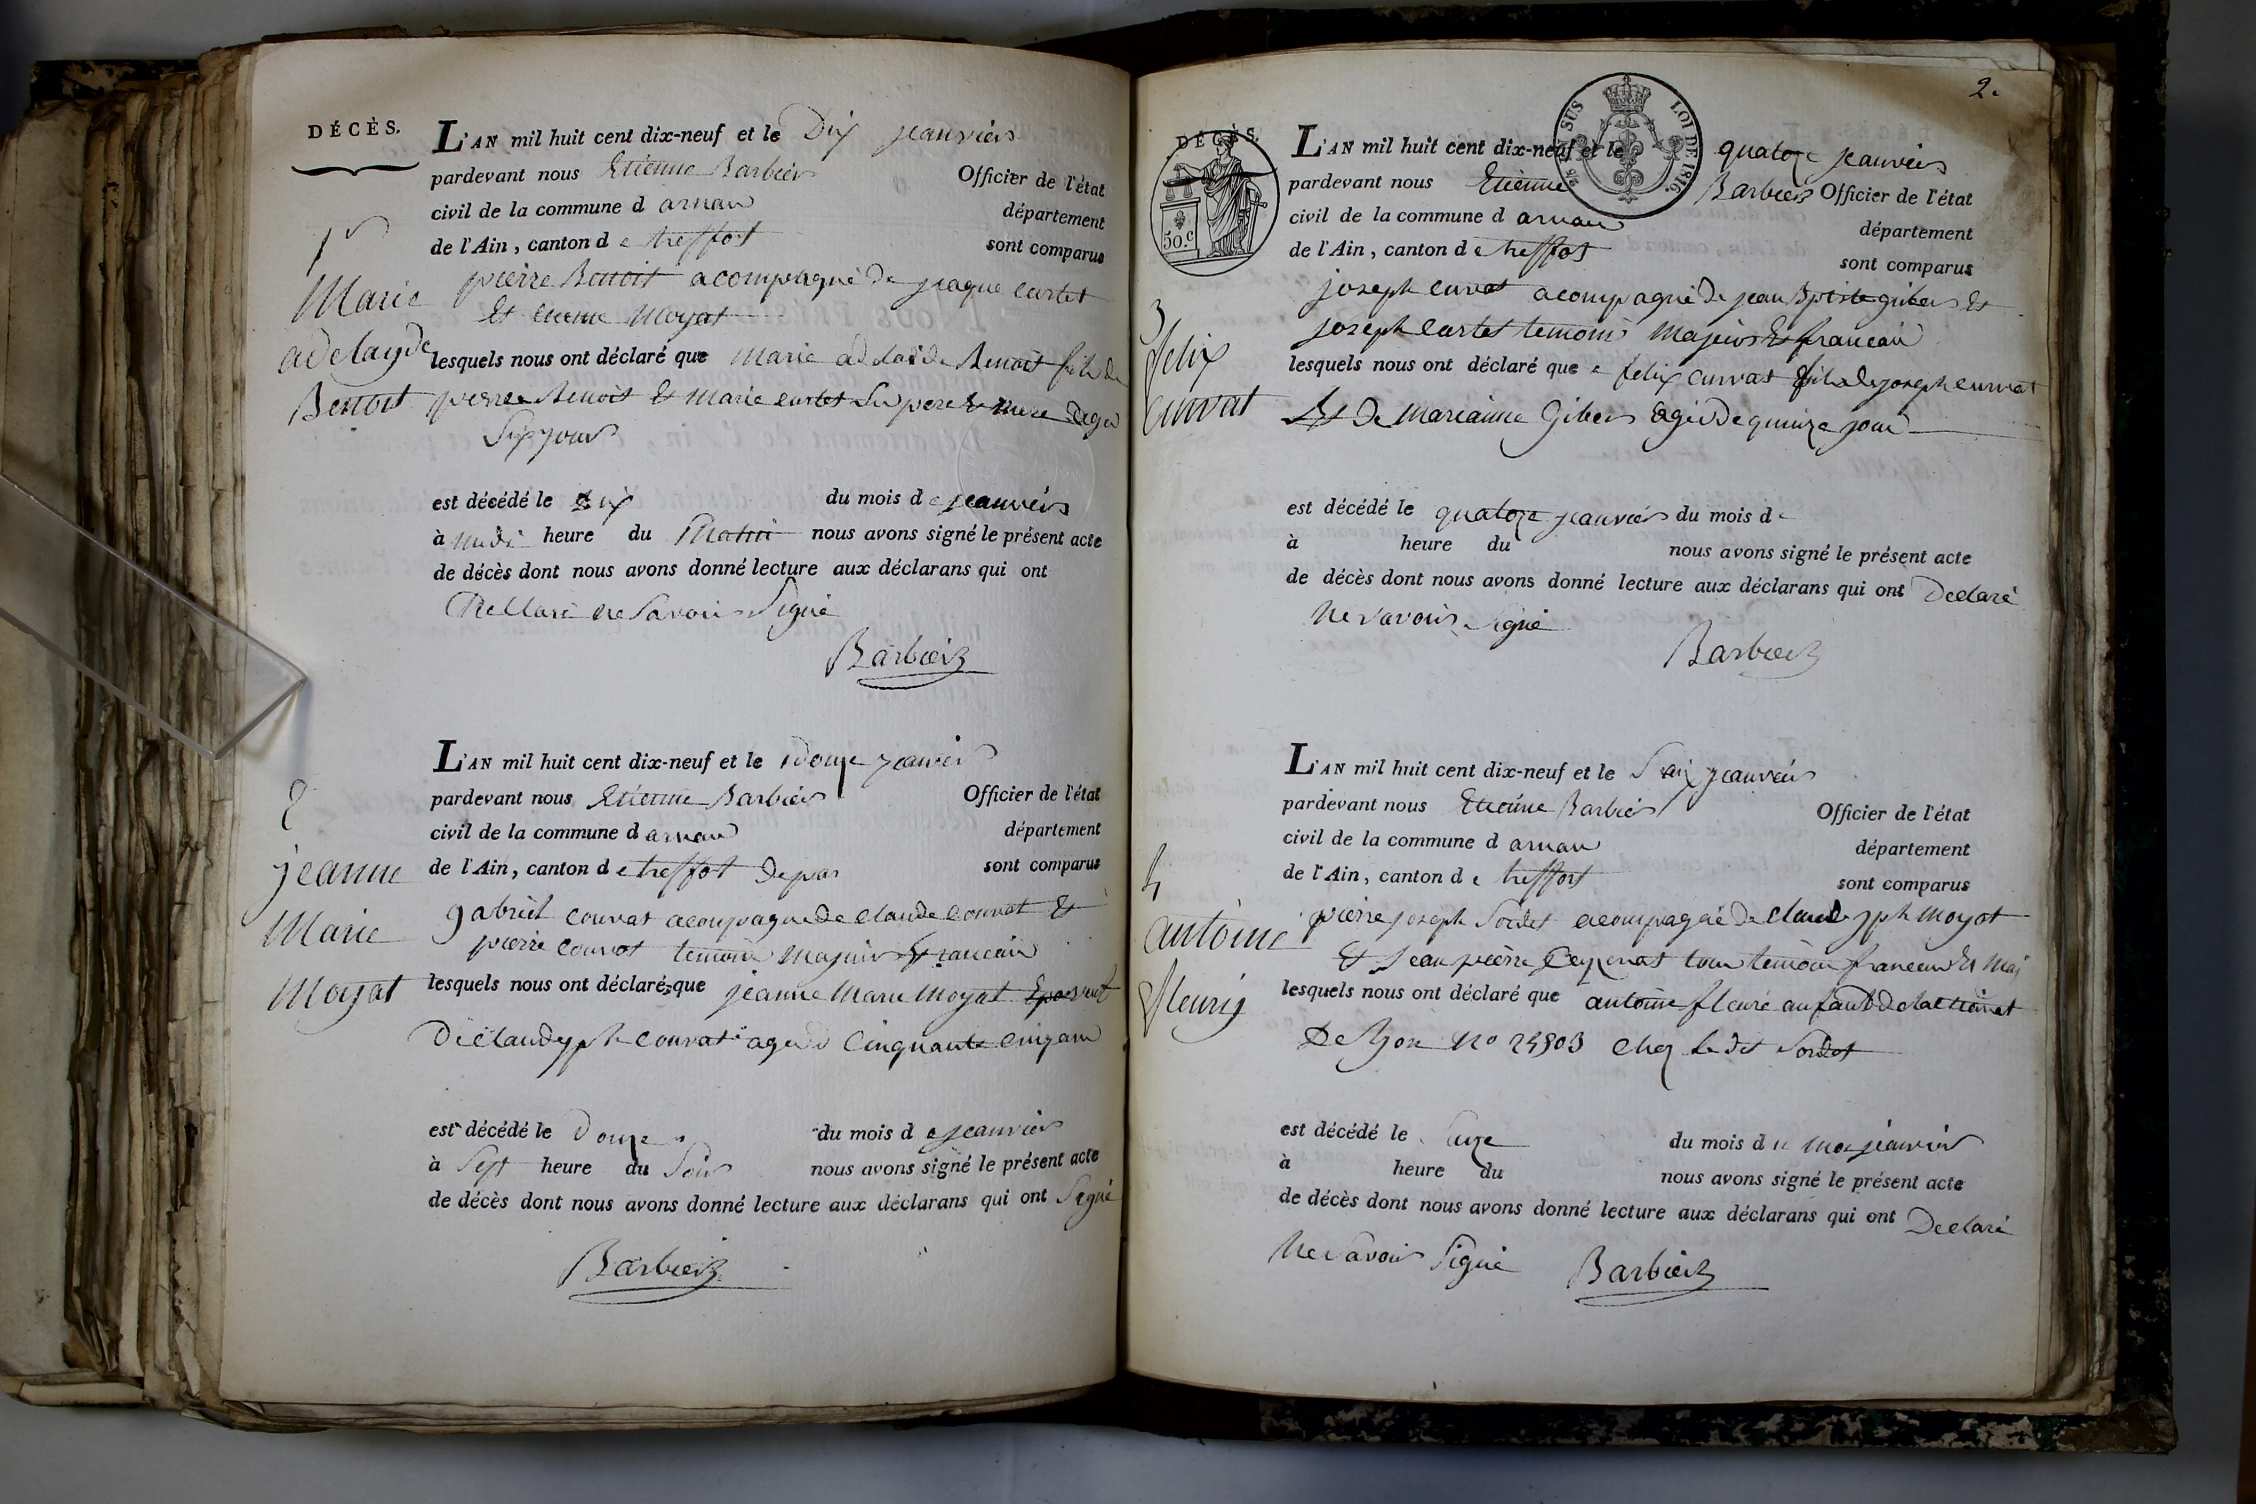 DÉCÈS.
L'AN mil huit cent dix-neuf et le Dix jeanvier
pardevant nous Etienne Barbier Officier de l'état
civil de la commune d arnan département
de l'Ain, canton d e treffort sont comparus
pierre Benoit acompagné de jeaque curtet
Et Moyat
lesquels nous ont déclaré que Marie adelaide Benoit file de
pierre Benoit Et Marie curtet Ses pere Et mere agé
Six jours
est décédé le dix du mois d e jeanvier
à midi heure du Matin nous avons signé le présent acte
de décès dont nous avons donné lecture aux déclarans qui ont
Declaré ne Savoir Signé
Barbier
1r
Marie
adelayde
Benoit
L'AN mil huit cent dix-neuf et le Douze jeanvier
pardevant nous Etienne Barbier Officier de l'état
civil de la commune d arnan département
de l'Ain, canton d e treffort sont comparus
gabriel couvat acompagné de claude couvat Et
pierre couvat temoin Majeur Et francais
lesquels nous ont déclaré que jeanne Marie Moyat
De claude jph couvat agee Cinquante Cinq ans
est décédé le Douze du mois d e jeanvier
à Sept heure du Soir nous avons signé le présent acte
de décès dont nous avons donné lecture aux déclarans qui ont Signé
Barbier
2
jeanne
Marie
Moyat
2.
50.c
SUS
LOI DE 1816.
DÉCÈS.
L'AN mil huit cent dix-neuf et le quatoze jeanvier
pardevant nous Etienne Barbier Officier de l'état
civil de la commune d arnan département
de l'Ain, canton d e treffort sont comparus
joseph curvat acompagné de jean Bptiste giber Et
joseph curtet temoin Majeur Et francais
lesquels nous ont déclaré que felix curvat fils de joseph curvat
Et De Marianne Giber agé De quinze jour
est décédé le quatoze jeanvier du mois d
à heure du nous avons signé le présent acte
de décès dont nous avons donné lecture aux déclarans qui ont Declaré
Ne Savoir Signé
Barbier
3
felix
curvat
L'AN mil huit cent dix-neuf et le jeanvier
pardevant nous Etienne Barbier Officier de l'état
civil de la commune d arnan département
de l'Ain, canton d e treffort sont comparus
pierre joseph Sordet acompagné de Claude jph Moyat
Et jean pierre tous temoin francais Et Maj
lesquels nous ont déclaré que antoine fleuri anfant de
De Lyon No Chez le dit Sordet
est décédé le du mois d jeanvier
à heure du nous avons signé le présent acte
de décès dont nous avons donné lecture aux déclarans qui ont Declaré
Ne Savoir Signé Barbier
4
antoine
fleurij